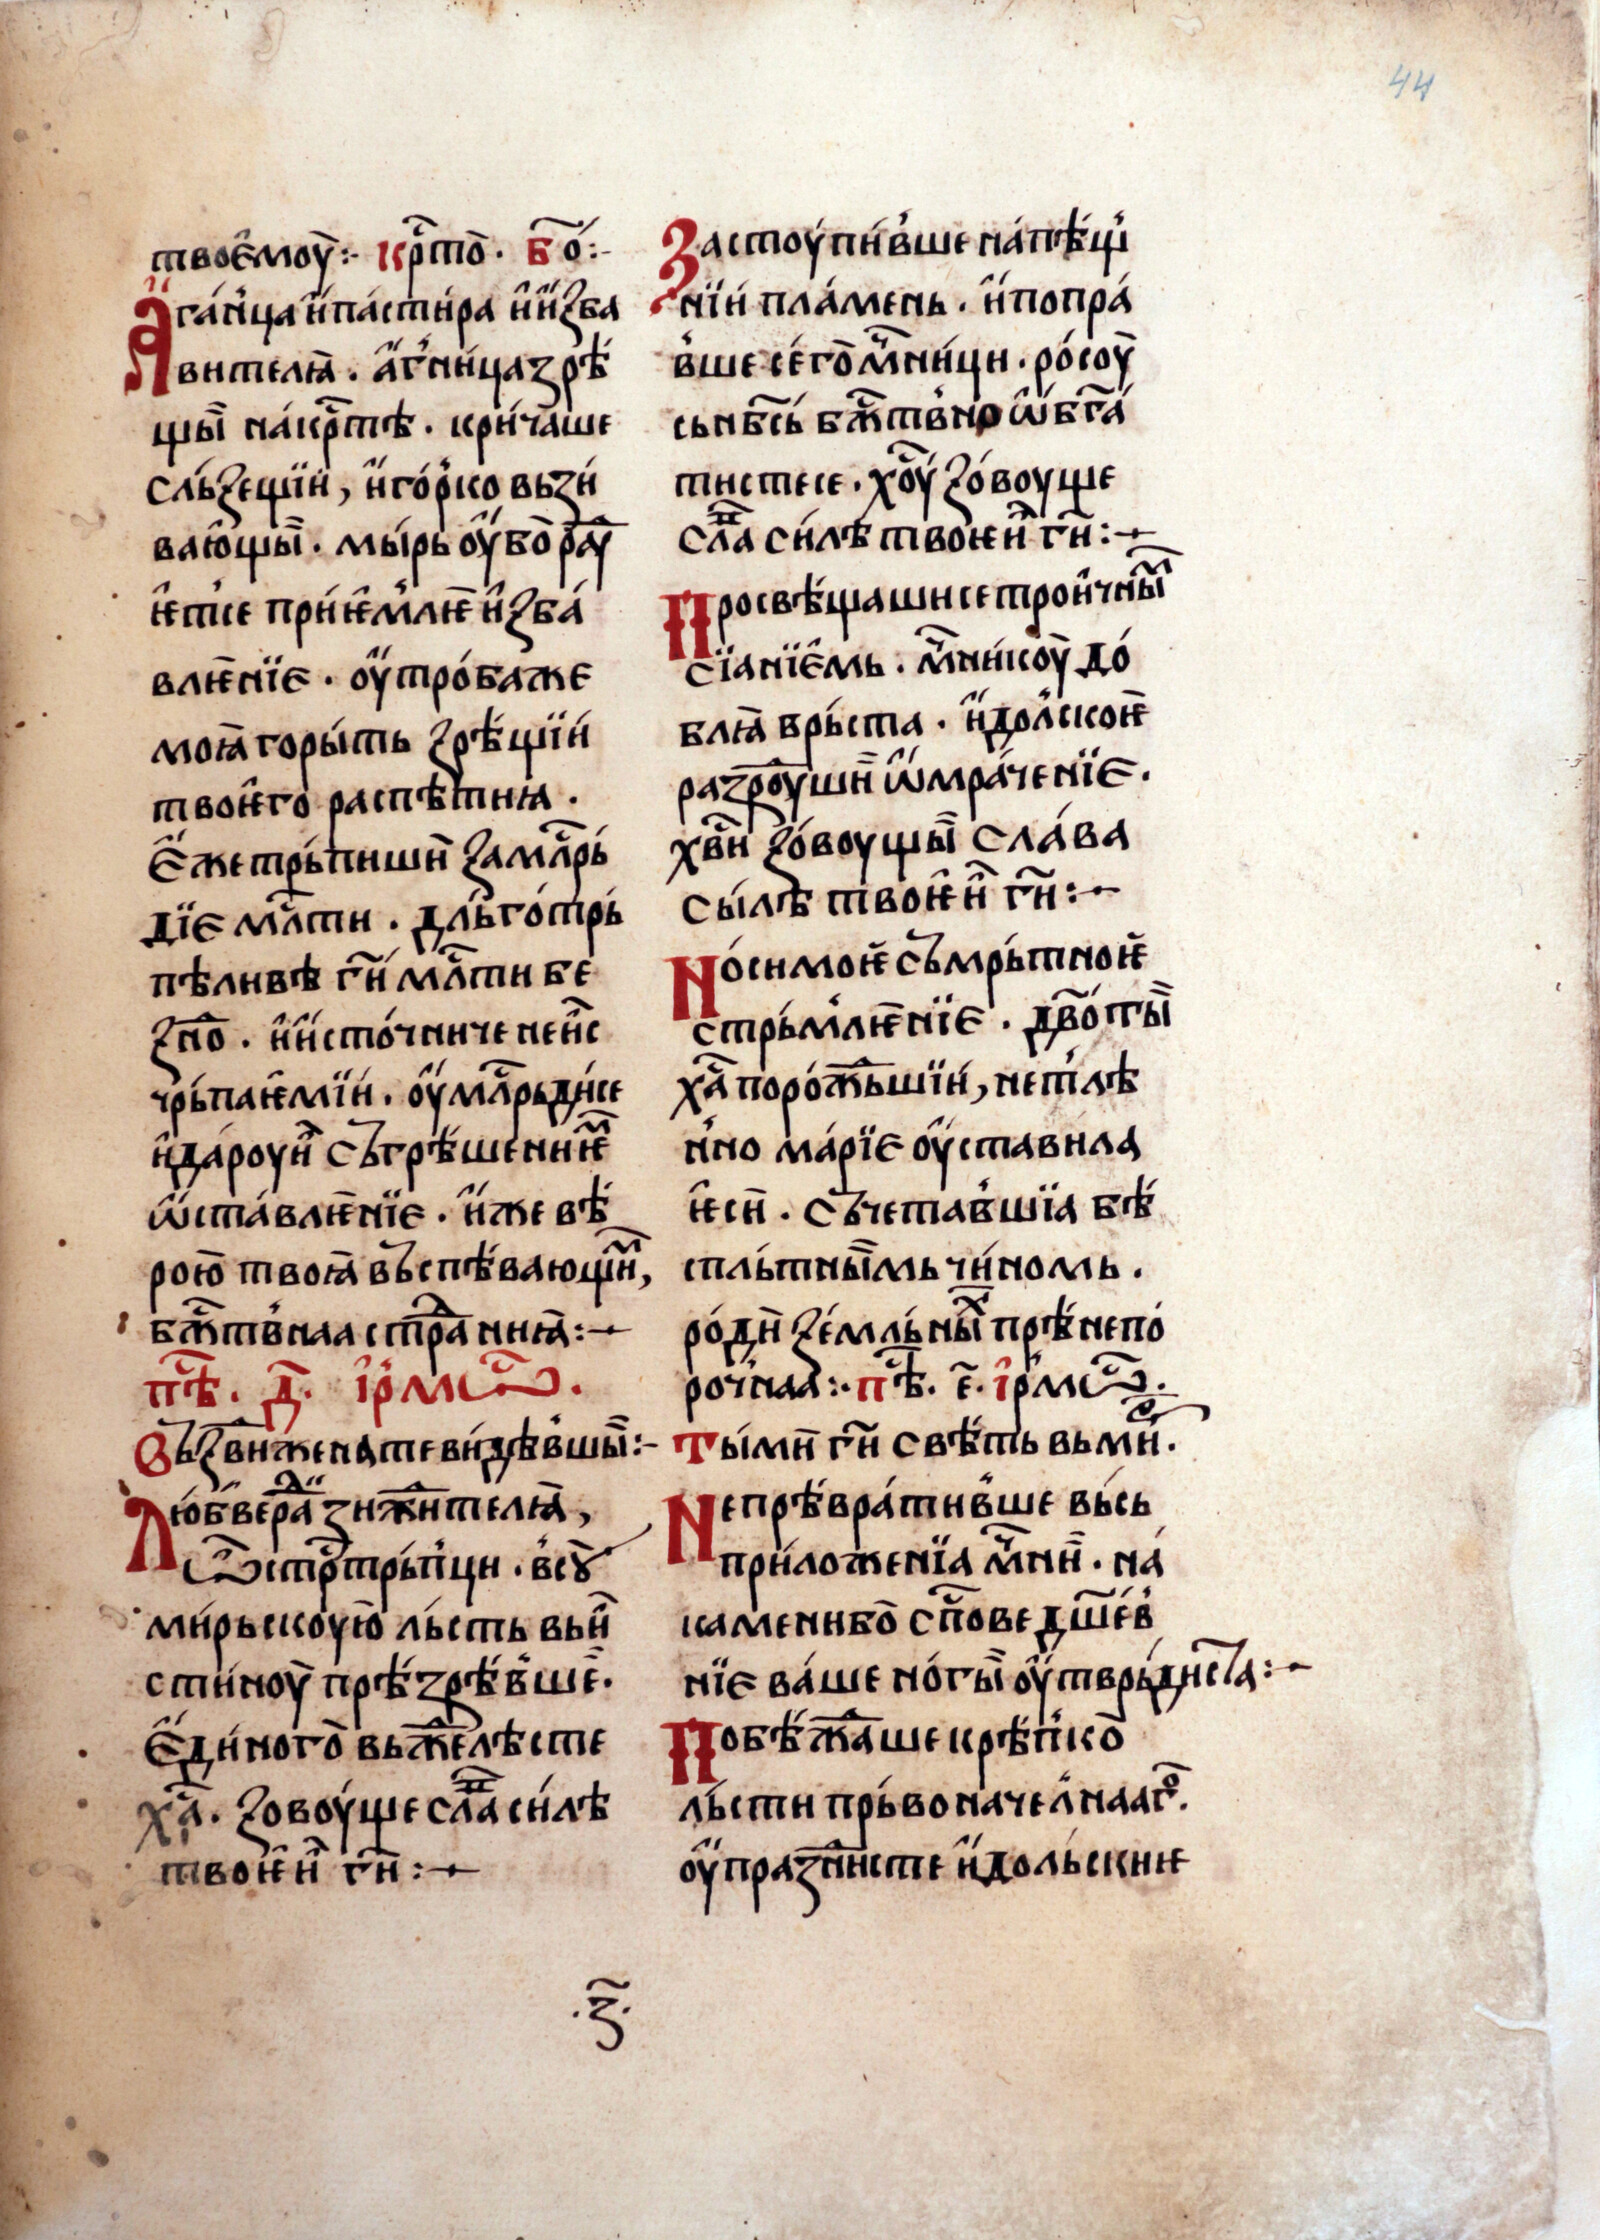 44
твоемоу҄:- кр҇то. б҃о:-
Аган'ца и пастира и изба
вителꙗ. аг'ница зрѣ
щы на кр҇тѣ. кричаше
сльꙁещїи, и гор'ко вьзи
вающы. мырь оубо рау
ѥт'се приѥм'лѥ иꙁба
влѥнїе. оутробаже
моꙗ горыть ꙁрѣщїи
твоѥго распѣтиꙗ.
Еже трьпиши ꙁа мл҇рь
дїе мл҇ти. дльготрь
пѣливѣ г҃и мл҇ти бе
ꙁно. и источниче неис
чрьпаѥмїи. оумл҇рьди се
и дароуи съгрѣшениѥм
ѿставлѥнїе. иже вѣ
рою твоꙗ въспѣвающим,
бж҇тв'наа страниꙗ:-
пѣ҇. д҃. ірмѡ҇.
Въꙁвижена те видѣв'шы:-
Любве раи зижителꙗ,
ѡ стр҇отрьп'ци. в'сꙋ
мирьскоую льсть вьи
стиноу прѣзрѣв'ше.
Единого вьжелѣсте
х҇а. ꙁовоуще сл҇а силѣ
твоѥи г҃и:-
Застоупив'ше на пѣщ'
нїи пламень. и попра
в'ше сего м҇ници. росоу
сьнб҇сь бж҇тв'но ѡбг҃а
тисте се. х҇оу ꙁовоуще
сл҇а силѣ твоѥи г҃и:-
Просвѣщаши се троичным
сїанїемь. м҇никоу до
блꙗ врьста. и дол'скоѥ
разроуши ѡмраченїе.
х҇ви ꙁовоущы слава
сылѣ твоѥи г҃и:-
Носимоѥ съмрьтноѥ
стрьм'лѥнїе. дв҃о ты
х҇а порожьшїи, нет'лѣ
н'но марїе оуставила
ѥси. съчетав'шїа бѣ
спльтнымь чиномь.
роди ꙁемльных прѣнепо
роч'наа:- пѣ҇. е҃. ірмѡ҇.
Ты ми г҃и свѣть вь ми.
Не прѣвратив'ше вьсь
приложенїа м҇ни. на
камени бо сп҇ове дш҃ев'
нїе ваше ногы оутврьдиста:-
Побѣжаше крѣп'ко
льсти прьвоначел'нааго.
оупразнисте идольскиѥ
·з҃·